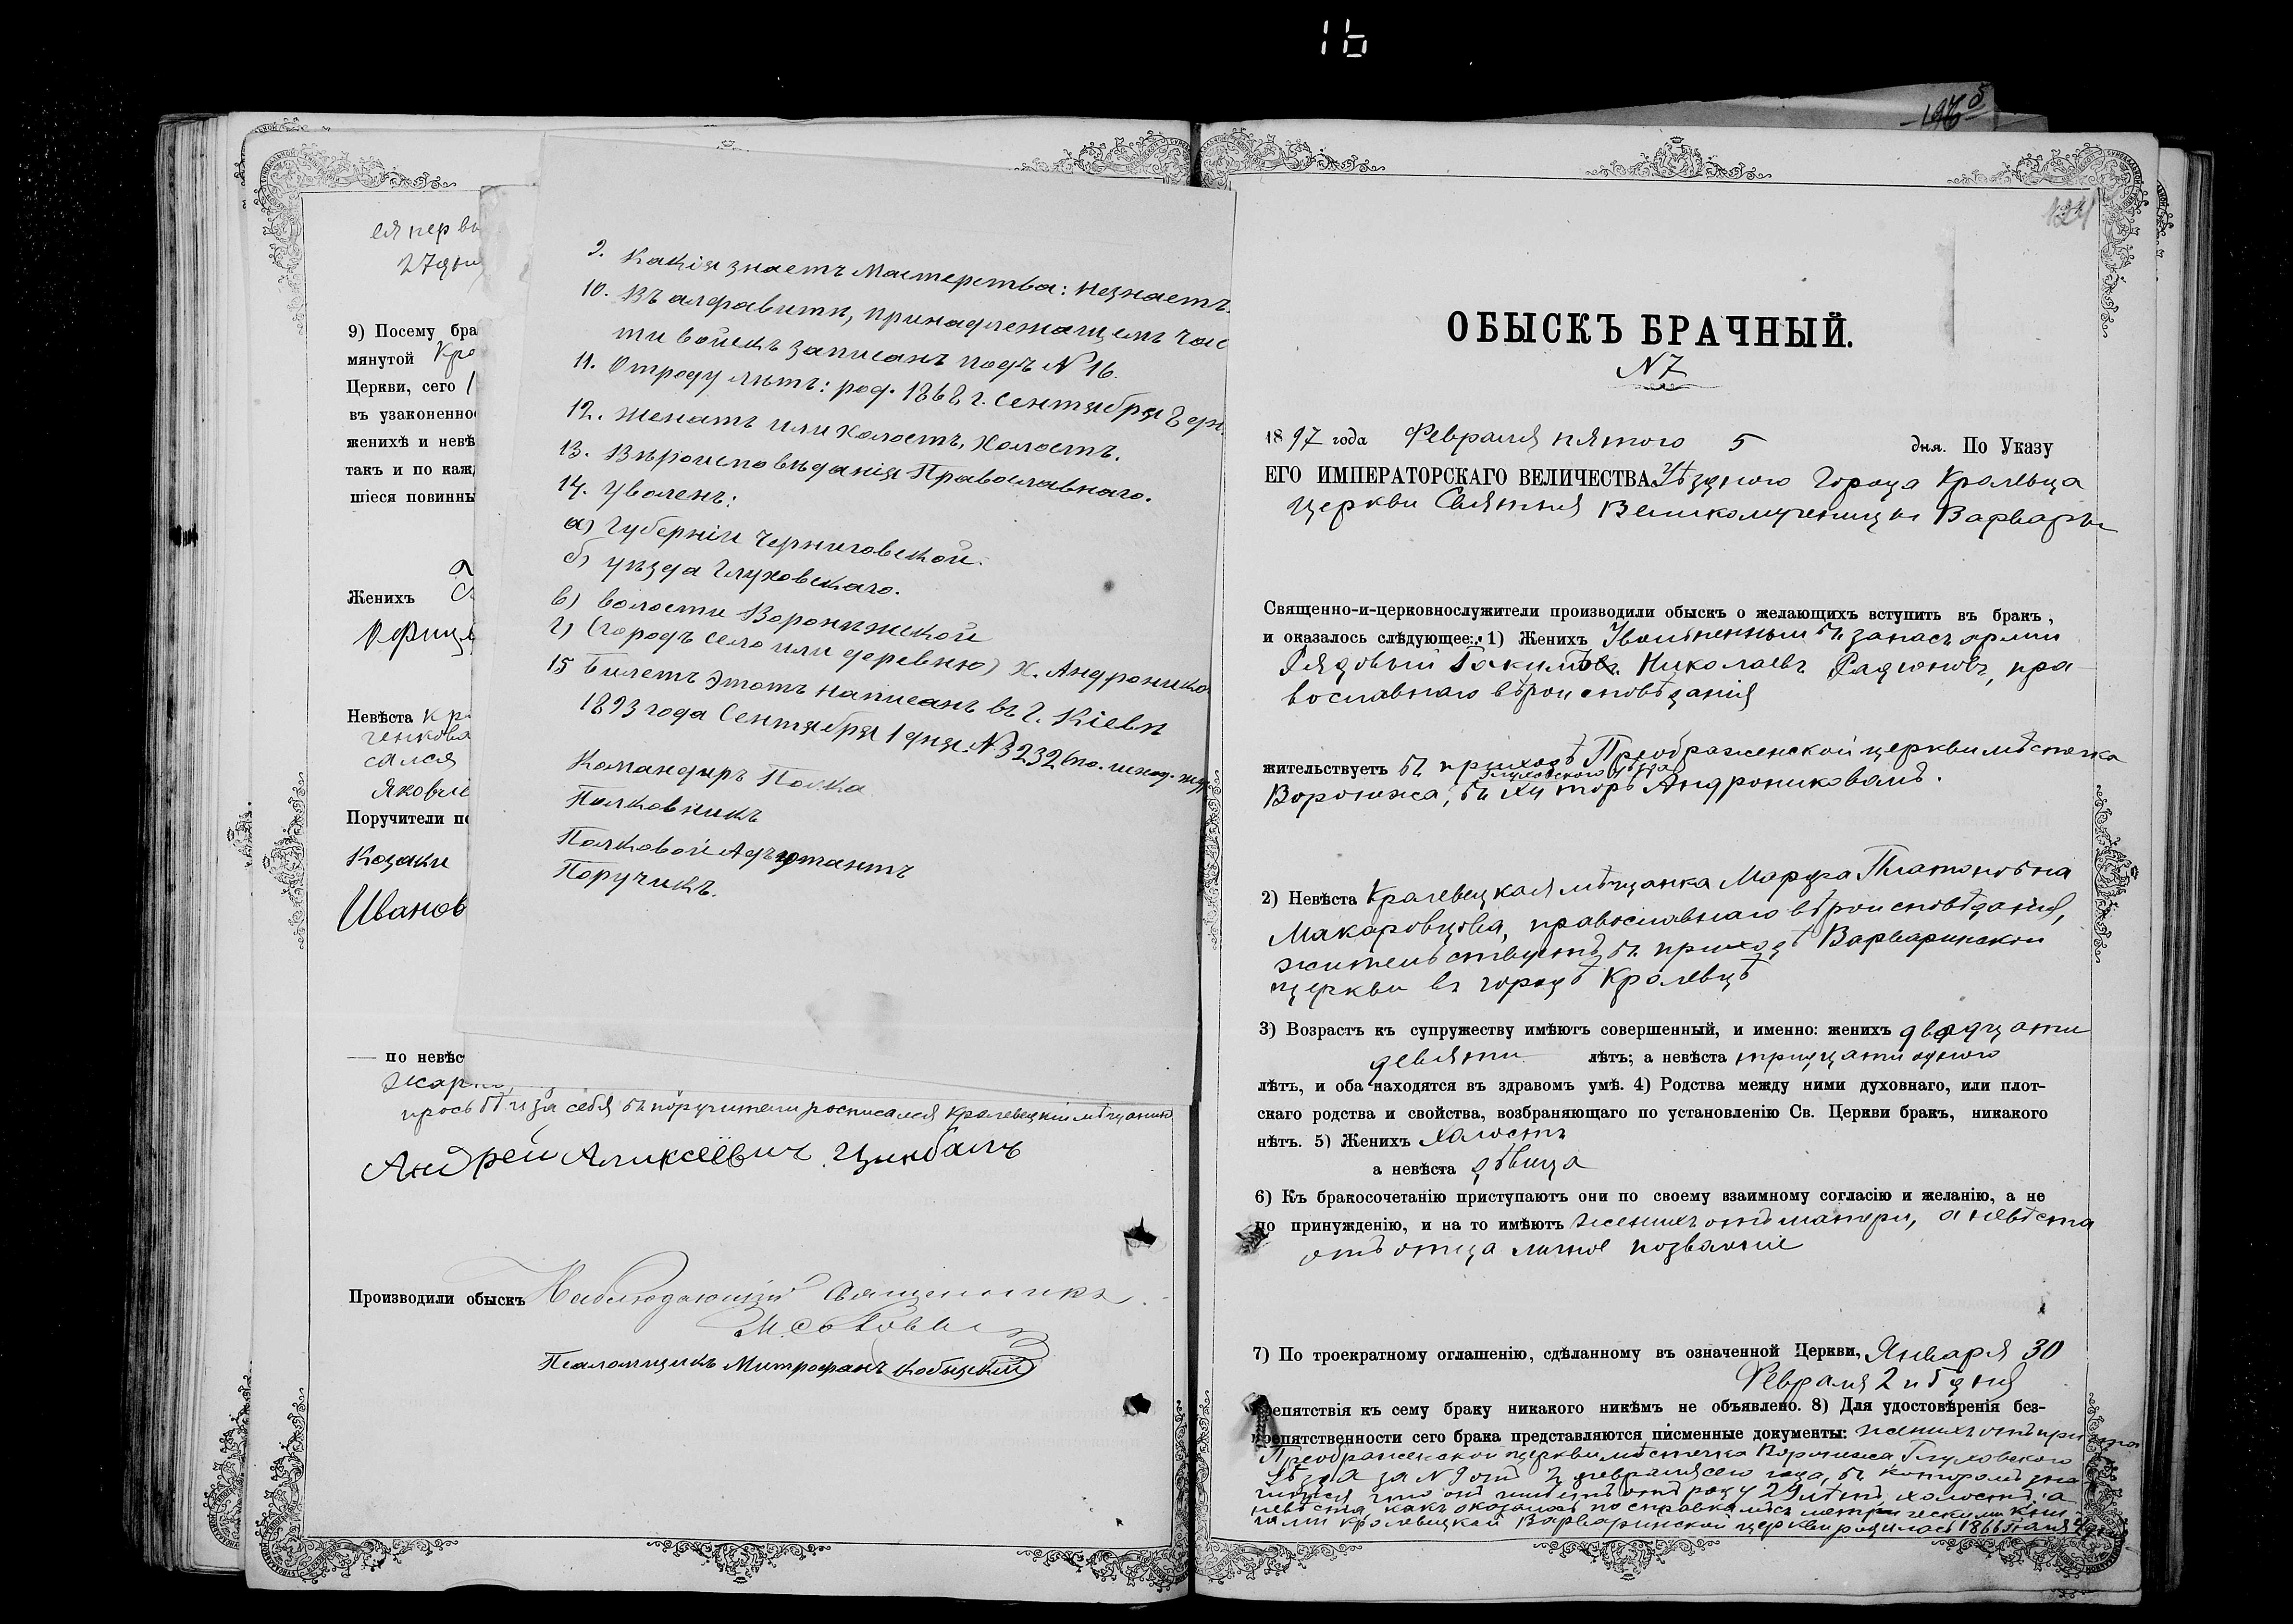 16
1975
ея первы
27 дня
9) Посему бра
мянутой Кро
Церкви, сего 1
въ узаконенно
женихѣ и невѣ
такъ и по каж
шіеся повинны
Женихъ
Невѣста Кр
ченкова
сался
Яковле
Поручители по
Козаки
Иванов
9. Какія знаетъ мастерства: Незнаетъ.
10. Въ алфавитѣ, принадлежащемъ час
ти войскъ записанъ подъ № 16.
11. Отроду лѣтъ: род. 1868 г. Сентября 8 дн.
12. Женатъ или холостъ, Холостъ.
13. Вѣроисповѣданія Православнаго.
14. Уволенъ:
а) Губерніи Черниговской.
б) уѣзда Глуховскаго.
в) волости Воронѣжской
г) (городъ село или деревню) х. Андронико
15 Билетъ этотъ написанъ въ г. Кіевѣ
1893 года Сентября 1 дня. № 3232 по. исход. жур.
Командиръ Полка
Полковникъ
Полковой Адъютантъ
Поручикъ.
— по невѣс
просьбѣ и за себя въ поручители росписался Кролевецкій мѣщанин
Андрей Аликсѣевич Цимбалъ
Производили обыскъ Наблюдающій Священникъ
Псаломщикъ Митрофанъ Кобыцкій
124
ОБЫСКЪ БРАЧНЫЙ.
№ 7
1897 года Февраля пятого 5 дня. По Указу
ЕГО ИМПЕРАТОРСКАГО ВЕЛИЧЕСТВА. Уѣзднаго Города Кролевца
Церкви Святыя Великомученицы Варвары
Священно-и-церковнослужители производили обыскъ о желающихъ вступить въ бракъ,
и оказалось слѣдующее: 1) Женихъ Уволенный въ запасъ арміи
Рядовый Іакимъ Николаевъ Радіоновъ, пра
вославнаго вѣроисповѣданія
жительствуетъ въ приходѣ Преображенской церкви мѣстечка
Глуховского уѣзда
Воронѣжа, въ хуторѣ Андрониковомъ.
2) Невѣста Кролевецкая мѣщанка Марфа Платоновна
Макаровцова, православнаго вѣроисповѣданія,
жительствуетъ въ приходѣ Варваринской
церкви въ городѣ Кролевцѣ
3) Возрастъ къ супружеству имѣютъ совершенный, и именно: женихъ двадцати
девяти лѣтъ; а невѣста тридцати одного
лѣтъ, и оба находятся въ здравомъ умѣ. 4) Родства между ними духовнаго, или плот-
скаго родства и свойства, возбраняющаго по установленію Св. Церкви бракъ, никакого
нѣтъ. 5) Женихъ холостъ
а невѣста дѣвица
6) Къ бракосочетанію приступаютъ они по своему взаимному согласію и желанію, а не
по принужденію, и на то имѣютъ женихъ отъ матери, а невѣста
отъ отца личное позволеніе
7) По троекратному оглашенію, сдѣланному въ означенной Церкви, Января 30
Февраля 2 и 5 дня
препятствія къ сему браку никакого никѣмъ не объявлено. 8) Для удостовѣренія без-
препятственности сего брака представляются писменные документы: женихъ отъ причта
Преображенской церкви мѣстечка Воронѣжа Глуховского
Уѣзда за № 9 отъ 2 февраля сего года, въ которомъ зна
чится что онъ имѣетъ отъ роду 29 лѣтъ, холостъ, а
невѣста какъ оказалось по справкамъ съ метрическими кни
гами Кролевецкой Варваринской церкви родилась 1866 года